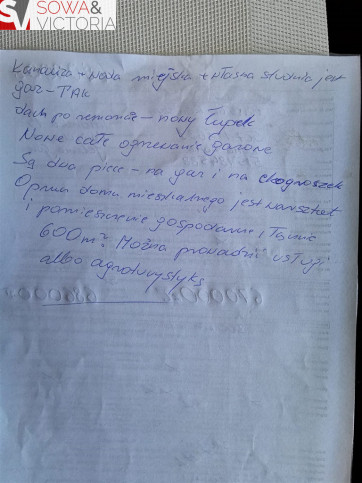 SOWA&
VICTORIA
Kanaliza + woda miejska + własna studnia jest
gaz - TAK
dach po remoncie - nowy łupek
Nowe całe ogrzewanie gazowe
Są dwa piece - na gaz i na ekogroszek
Oprócz domu mieszkalnego jest warsztat
i pomieszczenie gospodarcze, łącznie
600m². Można prowadzić usługi
albo agroturystykę